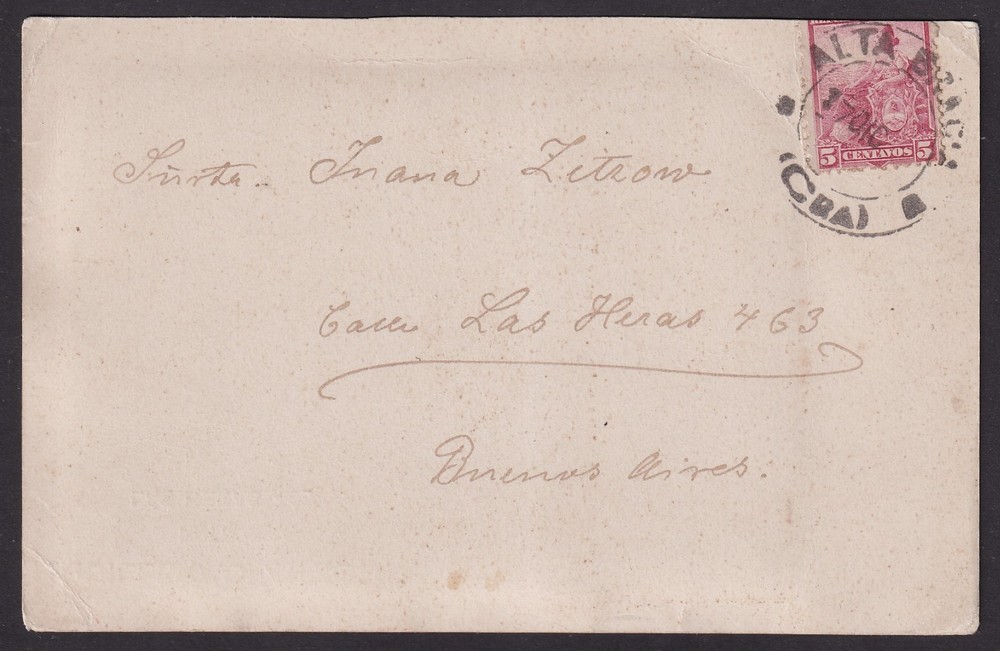 ALTA
17 DIC
5 CENTAVOS 5
(CBA)
Sūrta. Juana Zitzow
Calle Las Heras 463
Buenos Aires.